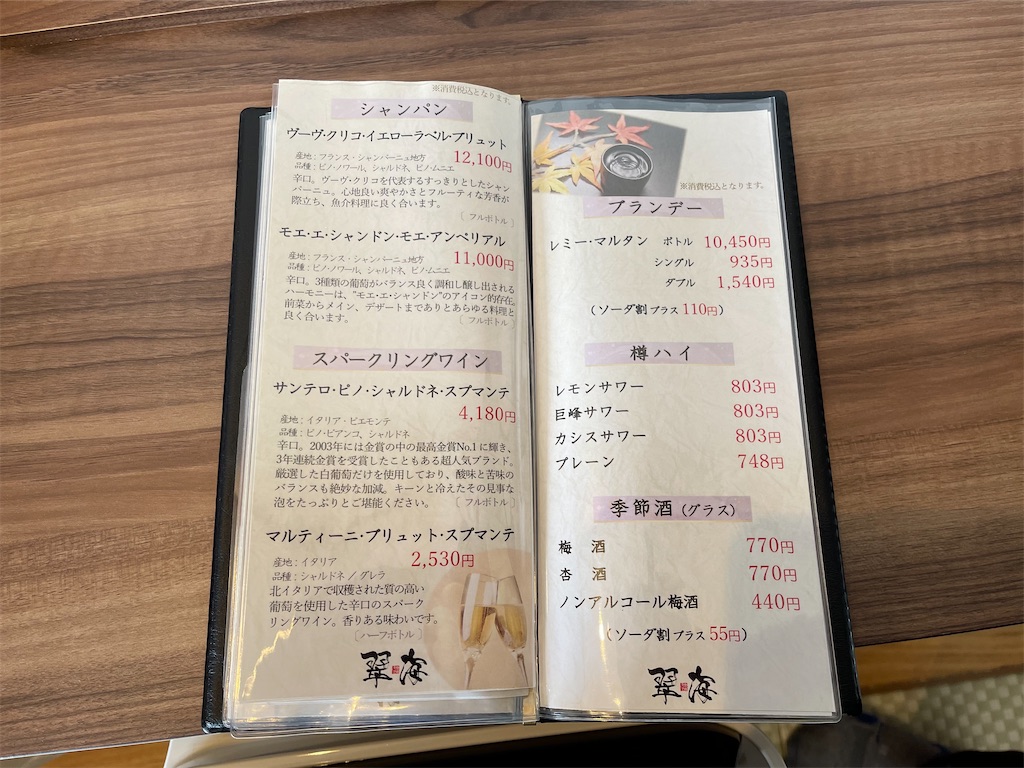 ※消費税込となります。
シャンパン
ヴーヴ・クリコ・イエローラベル・ブリュット
産地：フランス・シャンパーニュ地方 12,100円
品種：ピノ・ノワール、シャルドネ、ピノ・ムニエ
辛口。ヴーヴ・クリコを代表するすっきりとしたシャン
パーニュ。心地良い爽やかさとフルーティな芳香が
際立ち、魚介料理に良く合います。
〔 フルボトル 〕
モエ・エ・シャンドン・モエ・アンペリアル
産地：フランス・シャンパーニュ地方 11,000円
品種：ピノ・ノワール、シャルドネ、ピノ・ムニエ
辛口。3種類の葡萄がバランス良く調和し醸し出される
ハーモニーは、"モエ・エ・シャンドン"のアイコン的存在。
前菜からメイン、デザートまでありとあらゆる料理と
良く合います。 〔 フルボトル 〕
スパークリングワイン
サンテロ・ピノ・シャルドネ・スプマンテ
4,180円
産地：イタリア・ピエモンテ
品種：ピノ・ビアンコ、シャルドネ
辛口。2003年には金賞の中の最高金賞No.1に輝き、
3年連続金賞を受賞したこともある超人気ブランド。
厳選した白葡萄だけを使用しており、酸味と苦味の
バランスも絶妙な加減。キーンと冷えたその見事な
泡をたっぷりとご堪能ください。 〔 フルボトル 〕
マルティーニ・ブリュット・スプマンテ
産地：イタリア 2,530円
品種：シャルドネ／グレラ
北イタリアで収穫された質の高い
葡萄を使用した辛口のスパーク
リングワイン。香りある味わいです。
〔ハーフボトル 〕
翠海
※消費税込となります。
ブランデー
レミー・マルタン ボトル 10,450円
シングル 935円
ダブル 1,540円
（ソーダ割プラス110円）
樽ハイ
レモンサワー 803円
巨峰サワー 803円
カシスサワー 803円
プレーン 748円
季節酒（グラス）
梅 酒 770円
杏 酒 770円
ノンアルコール梅酒 440円
（ソーダ割プラス55円）
翠海